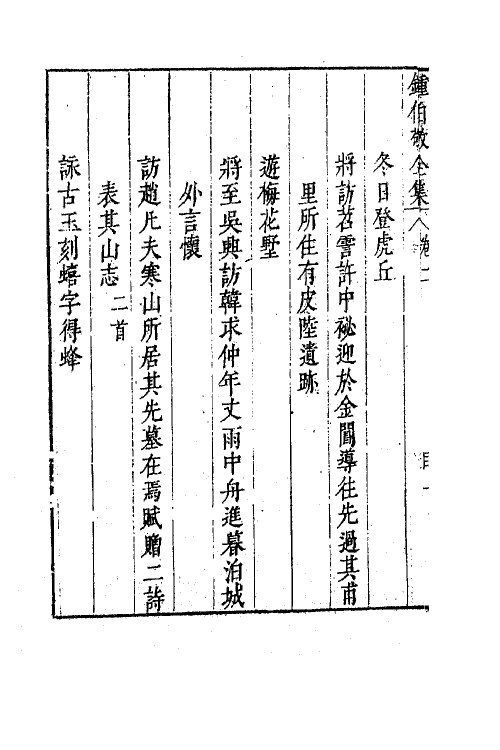 鍾伯敬全集 卷
冬日登虎丘
將訪苕霅許中祕迎於金閶導往先過其甫
里所住有皮陸遺跡
遊梅花墅
將至吳興訪韓求仲年丈雨中舟進暮泊城
外言懷
訪趙凡夫寒山所居其先墓在焉賦贈二詩
表其山志二首
詠古玉刻螭字得蜂